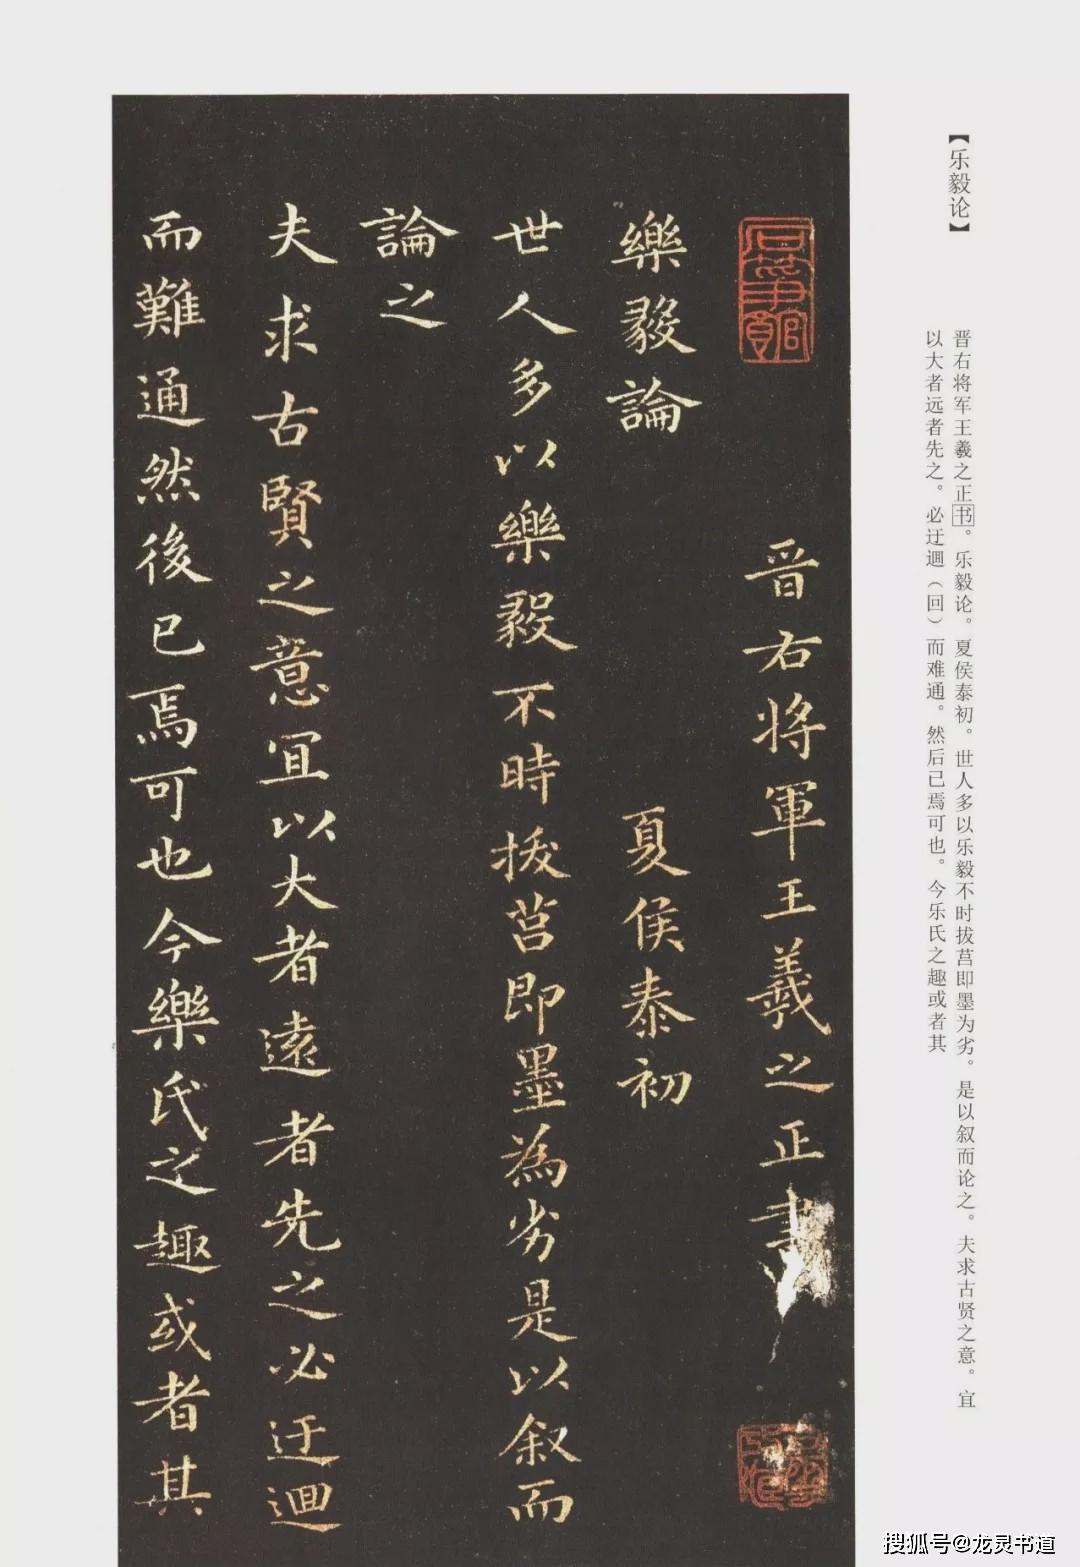 【乐毅论】
晋右将军王羲之正书。乐毅论。夏侯泰初。世人多以乐毅不时拔莒即墨为劣。是以叙而论之。夫求古贤之意。宜
以大者远者先之。必迂迴（回）而难通。然后已焉可也。今乐氏之趣或者其
晋右将軍王羲之正書
樂毅論 夏侯泰初
世人多以樂毅不時拔莒即墨為劣是以叙而
論之
夫求古賢之意宜以大者遠者先之必迂迴
而難通然後已焉可也今樂氏之趣或者其
搜狐号@龙灵书道